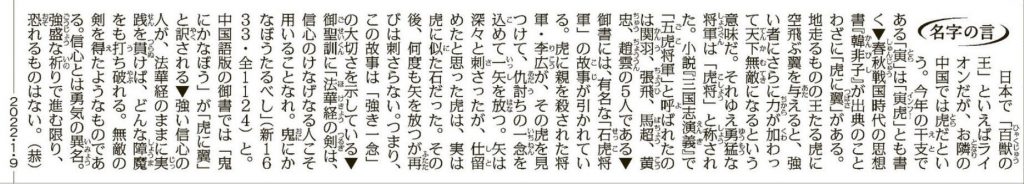 名字の言
日本で「百獣の
王」といえばライ
オンだが、お隣の
中国では虎だとい
う。今年の干支で
ある「寅」は「寅虎」とも書
く▼春秋戦国時代の思想
書『韓非子』が出典のこと
わざに「虎に翼」がある。
地走るものの王たる虎に
空飛ぶ翼を与えると、強
い者にさらに力が加わっ
て天下無敵になるという
意味だ。それゆえ勇猛な
将軍は「虎将」と称され
た。小説『三国志演義』で
「五虎将軍」と呼ばれたの
は関羽、張飛、馬超、黄
忠、趙雲の5人である▼
御書には、有名な「石虎将
軍」の故事が引かれてい
る。虎に親を殺された将
軍・李広が、その虎を見
つけて、仇討ちの一念を
込めて一矢を放つ。矢は
深々と刺さったが、仕留
めたと思った虎は、実は
虎に似た石だった。その
後、何度も矢を放つが再
びは刺さらない。つまり、
この故事は「強き一念」
の大切さを示している▼
御聖訓に「法華経の剣は、
信心のけなげなる人こそ
用いることなれ。鬼にか
なぼうたるべし」(新16
33・全1124)と。
中国語版の御書では「鬼
にかなぼう」が「虎に翼」
と訳される▼強い信心の
人が、法華経のままに実
践を貫けば、どんな障魔
をも打ち破れる。無敵の
剣を得たようなものであ
る。信心とは勇気の異名。
強盛な祈りで進む限り、
恐れるものはない。(恭)
2022・1・19